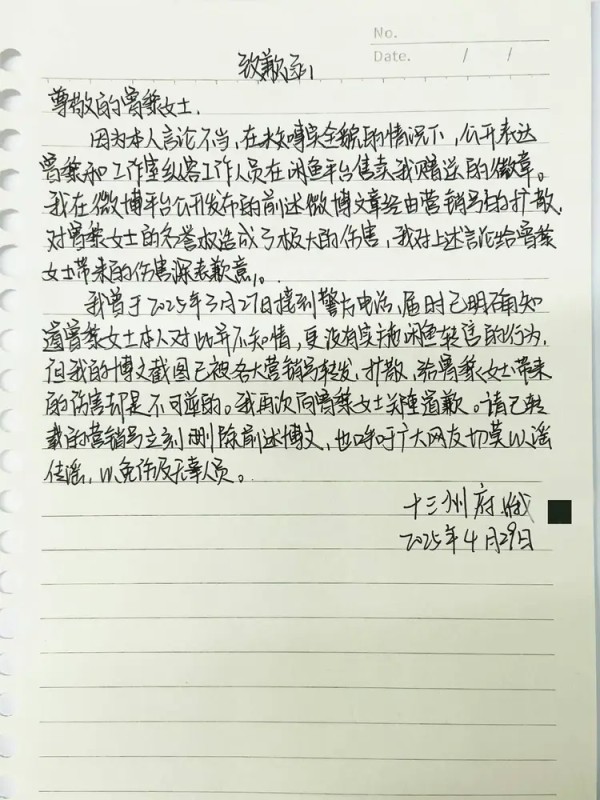 No.
Date. / /
致歉函
尊敬的曾黎女士.
因为本人言论不当,在未querying实全貌的情况下,公开表达
曾黎和工作室纵容工作人员在闲鱼平台售卖我赠送的徽章。
我在微博平台公开发布的前述微博文章经由营销号的扩散,
对曾黎女士的名誉权造成了极大的伤害,我对上述言论给曾黎
女士带来的伤害深表歉意。
我曾于2025年3月27日接到警方电话,届时已明确知
道曾黎女士本人对此并不知情,更没有实施闲鱼转售的行为,
但我的博文截图已被各大营销号转发、扩散,给曾黎女士带来
的伤害却是不可逆的。我再次向曾黎女士郑重道歉。请已转
载的营销号立刻删除前述博文,也呼吁广大网友切莫以谣
传谣,以免伤及无辜人员。
十三州府
2025年4月29日